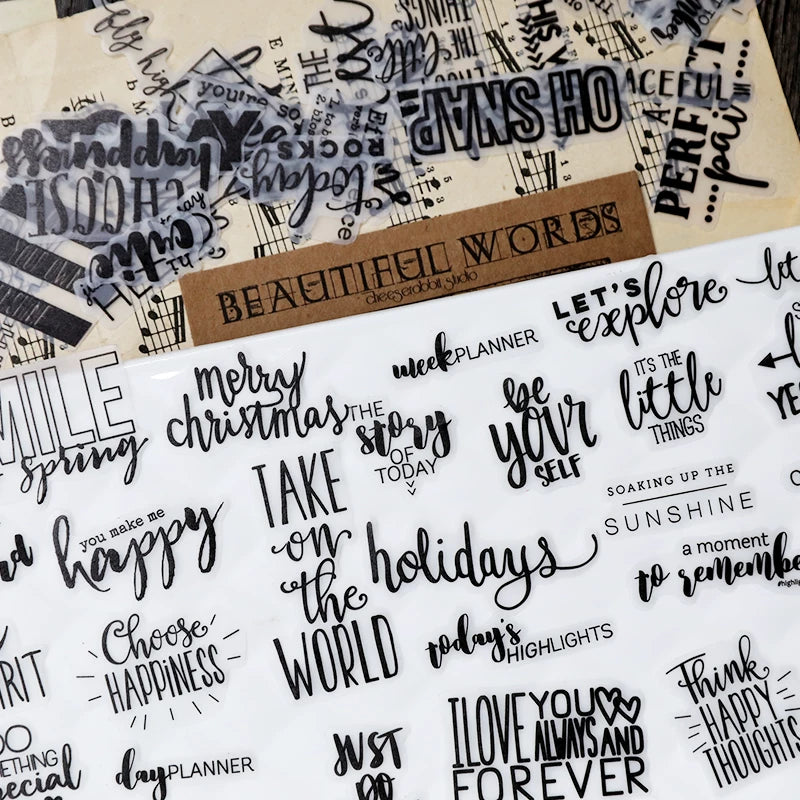 fly high
THE
THINGS
you're so
ROCKS
today
happiness
CHOOSE
cutie
OH SNAP
PERFECT
pair
BEAUTIFUL WORDS
cheeserabbit studio
LET'S
explore
let
week PLANNER
merry
christmas
MILE
spring
THE
story
OF
TODAY
be
YOUR
SELF
IT'S THE
little
THINGS
SOAKING UP THE
SUNSHINE
you make me
happy
TAKE
on
the
WORLD
holidays
a moment
to remember
today's
HIGHLIGHTS
Choose
HAPPINESS
RIT
Think
HAPPY
THOUGHTS
DO
ETHING
pecial
day PLANNER
JUST
DO
I LOVE YOU
ALWAYS AND
FOREVER